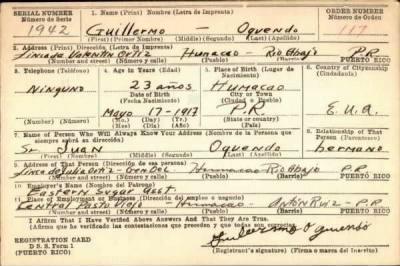 SERIAL NUMBER 1. Name (Print) Nombre (Letra de Imprenta) ORDER NUMBER
Número de Serie Número de Orden
1942 Guillermo — Oquendo 117
(First) (Primer Nombre) (Middle) (Segundo) (Last) (Apellido)
2. Address (Print) Dirección (Letra de Imprenta)
Ortiz Humacao - Rio Abajo P.R.
Number and street) (Número y calle) (Town) (Pueblo) (County) (Barrio) PUERTO RICO
3. Telephone (Teléfono) 4. Age in Years (Edad) 5. Place of Birth (Lugar de Nacimiento) 6. Country of Citizenship (Ciudadanía)
Ninguno 23 años Humacao
Date of Birth City or Town
(Fecha Nacimiento) (Ciudad o Pueblo)
Mayo 17-1917 P.R. E.U.A.
(Mo.) (Day) (Yr.) (State or country)
(Mes) (Día) (Año) (Estado o país)
7. Name of Person Who Will Always Know Your Address (Nombre de la Persona que siempre sabrá su dirección) 8. Relationship of That Person (Parentesco)
Sr. Juan Oquendo hermano
(First) (Primer Nombre) (Middle) (Segundo) (Last) (Apellido)
9. Address of That Person (Dirección de esa persona)
Humacao Rio Abajo P.R.
Number and street) (Número y calle) (Town) (Pueblo) (County) (Barrio) PUERTO RICO
10. Employer's Name (Nombre del Patrono)
Eastern Sugar Asst.
11. Place of Employment or Business (Sitio del empleo o negocio)
Central Pasto Viejo Humacao - Antón Ruiz - P.R.
(Number and street) (Número y calle) (Town) (Pueblo) (County) (Barrio) PUERTO RICO
I Affirm That I Have Verified Above Answers And That They Are True.
(Afirmo que he verificado las contestaciones que preceden y que todas son ciertas)
REGISTRATION CARD
D. S. S. Form 1
(PUERTO RICO)
Guillermo Oquendo
(Registrant's signature) (Firma o marca del Inscrito)